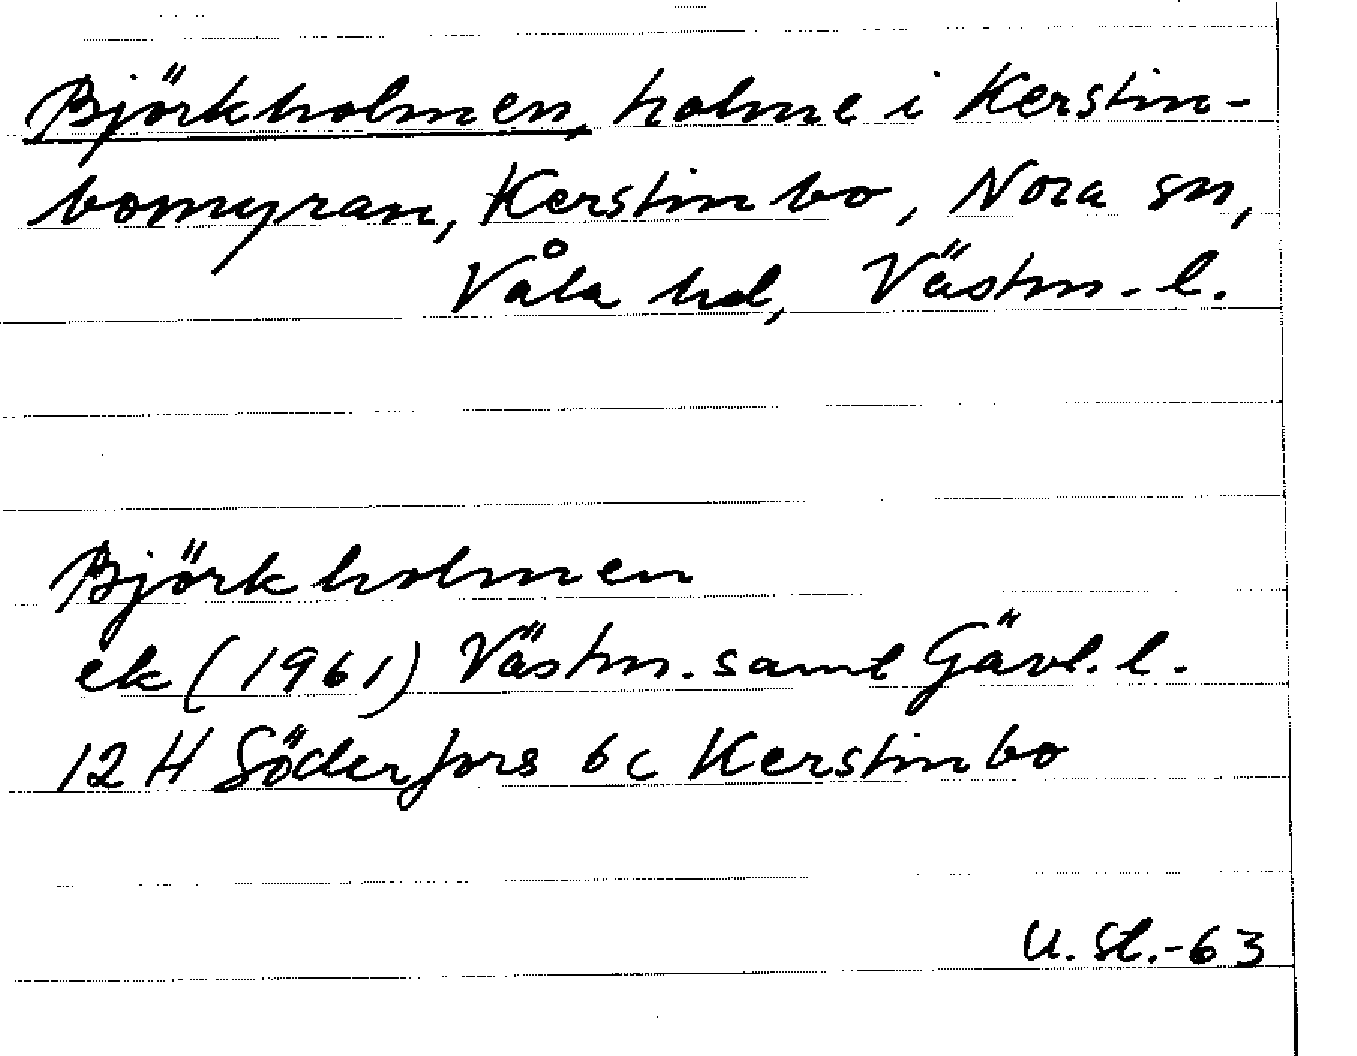 Björkholmen, holme i Kerstin-
bomyran, Kerstinbo, Nora sn,
Våla hd, Västm. l.
Björkholmen
ek (1961) Västm. samt Gävl. l.
12 H Söderfors 6 c Kerstinbo
U. St.-63